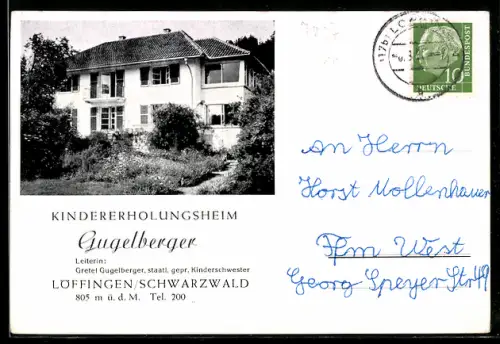 KINDERERHOLUNGSHEIM
Gugelberger
Leiterin:
Gretel Gugelberger, staatl. gepr. Kinderschwester
LÖFFINGEN/SCHWARZWALD
805 m ü. d. M. Tel. 200
10
DEUTSCHE
BUNDESPOST
An Herrn
Horst Mollenhauer
Ffm West
Georg Speyer Str 49